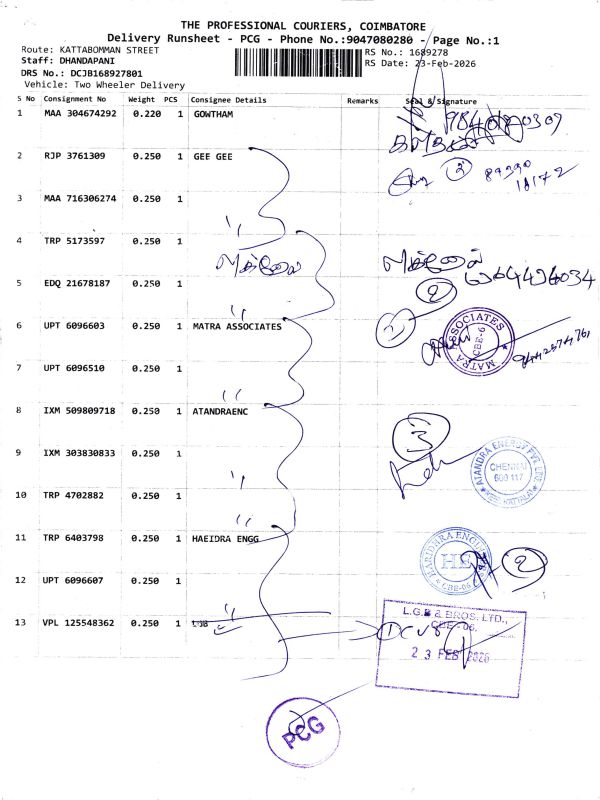 THE PROFESSIONAL COURIERS, COIMBATORE
Delivery Runsheet - PCG - Phone No.:9047080280 - Page No.:1
Route: KATTABOMMAN STREET
RS No.: 1689278
Staff: DHANDAPANI
RS Date: 23-Feb-2026
DRS No.: DCJB168927801
Vehicle: Two Wheeler Delivery
S No Consignment No Weight PCS Consignee Details Remarks Seal & Signature
1 MAA 304674292 0.220 1 GOWTHAM
2 RJP 3761309 0.250 1 GEE GEE
2
3 MAA 716306274 0.250 1
4 TRP 5173597 0.250 1
5 EDQ 21678187 0.250 1
2
6 UPT 6096603 0.250 1 MATRA ASSOCIATES
MATRA ASSOCIATES
CBE-6
7 UPT 6096510 0.250 1
8 IXM 509809718 0.250 1 ATANDRAENC
3
9 IXM 303830833 0.250 1
ATANDRA ENERGY PVT. LTD.
CHENNAI
600 117
10 TRP 4702882 0.250 1
11 TRP 6403798 0.250 1 HAEIDRA ENGG
HE
CBE-06
2
12 UPT 6096607 0.250 1
13 VPL 125548362 0.250 1 LGB
L.G.B & BROS. LTD.,
CBE-06.
23 FEB 2026
PCG